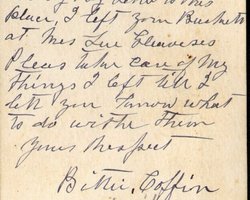 place, I left your Buckett
at Mrs Lue Cleaveses
Pleas take care of My
things I left till I
lett you know what
to do withe them
Yours Respect
Bittie, Coffin